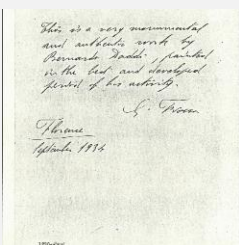 This is a very monumental
and authentic work by
Bernardo Daddi, painted
in the best and developed
period of his activity.
G. Fiocco
Florence
September 1934